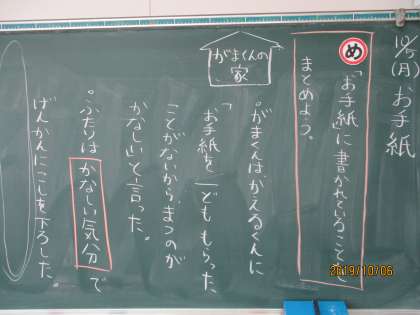 10/5(月) お手紙
め
「お手紙」に書かれていることを
まとめよう。
がまくんの
家
。がまくんは、かえるくんに
「お手紙を一どももらった
ことがないから、まつのが
かなしい」と言った。
。ふたりは かなしい気分 で
げんかんにこしを下ろした。
2019/10/06